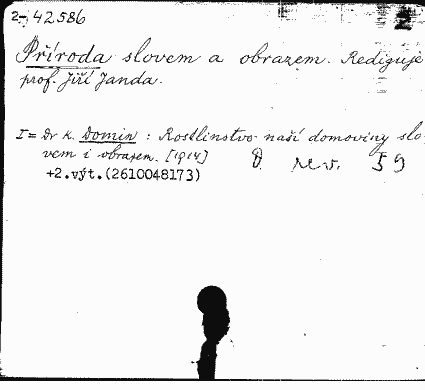 2-42586
Příroda slovem a obrazem. Rediguje
prof. Jiří Janda.
I = Dr K. Domin: Rostlinstvo naší domoviny slo-
vem i obrazem. [1914]
+2.výt.(2610048173)